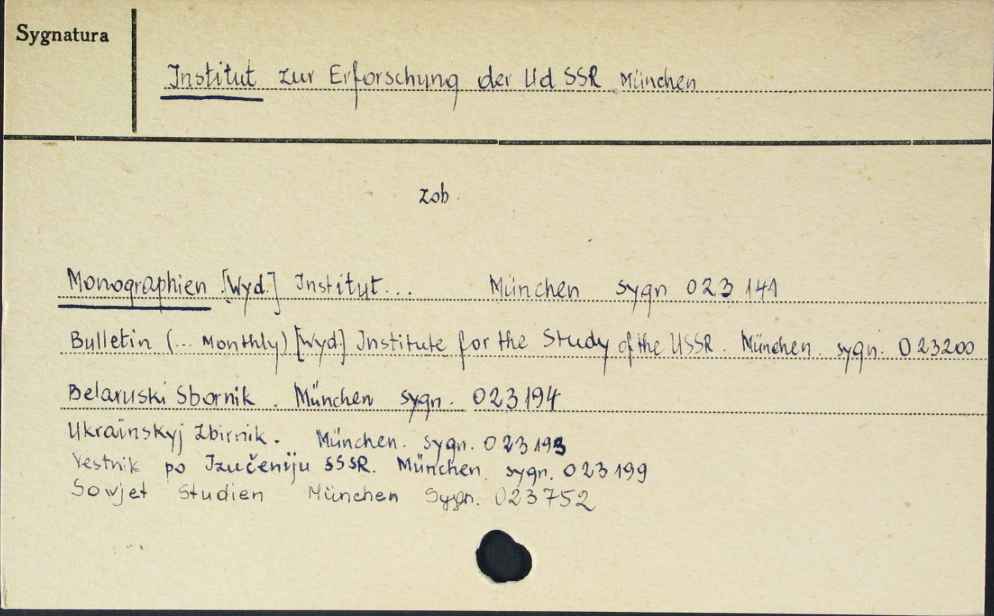 Sygnatura
Institut zur Erforschung der UdSSR München
zob.
Monographien [Wyd.] Institut... München sygn 023 141
Bulletin (... monthly) [Wyd] Institute for the Study of the USSR. München. sygn. 023200
Belaruski Sbornik. München sygn. 023194
Ukrainskyj Zbirnik. München. sygn. 023193
Vestnik po Izučeniju SSSR. München. sygn. 023199
Sowjet Studien München Sygn. 023752